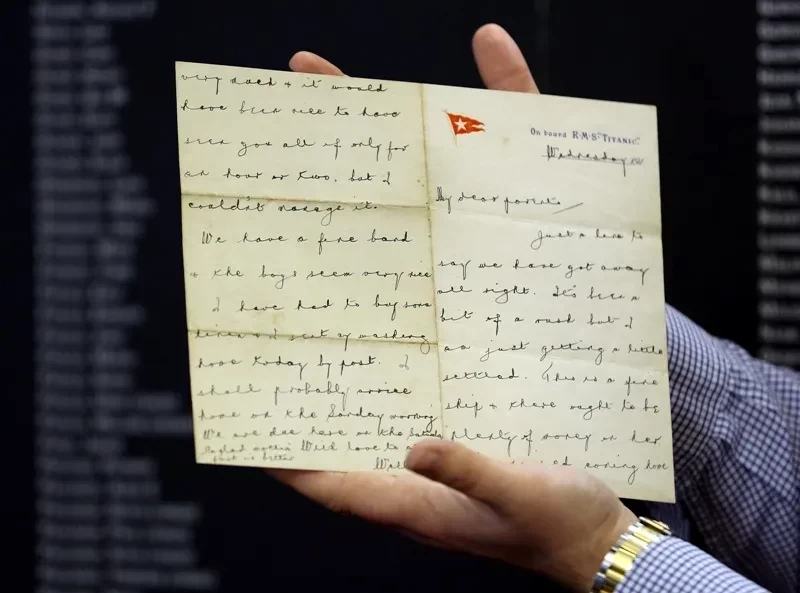 On board R.M.S. "TITANIC".
Wednesday 191
My dear parents
Just a line to
say we have got away
all right. It's been a
bit of a rush but I
am just getting a little
settled. This is a fine
ship & there ought to be
plenty of money on her
coming home
very much & it would
have been nice to have
seen you all if only for
an hour or two, but I
couldn't manage it.
We have a fine band
& the boys seem very nice
I have had to buy some
linen & I sent my washing
home today by post. I
shall probably arrive
home on the Sunday morning
We are due here on the Saturday
So glad mother's With love to a
foot is better
Wall